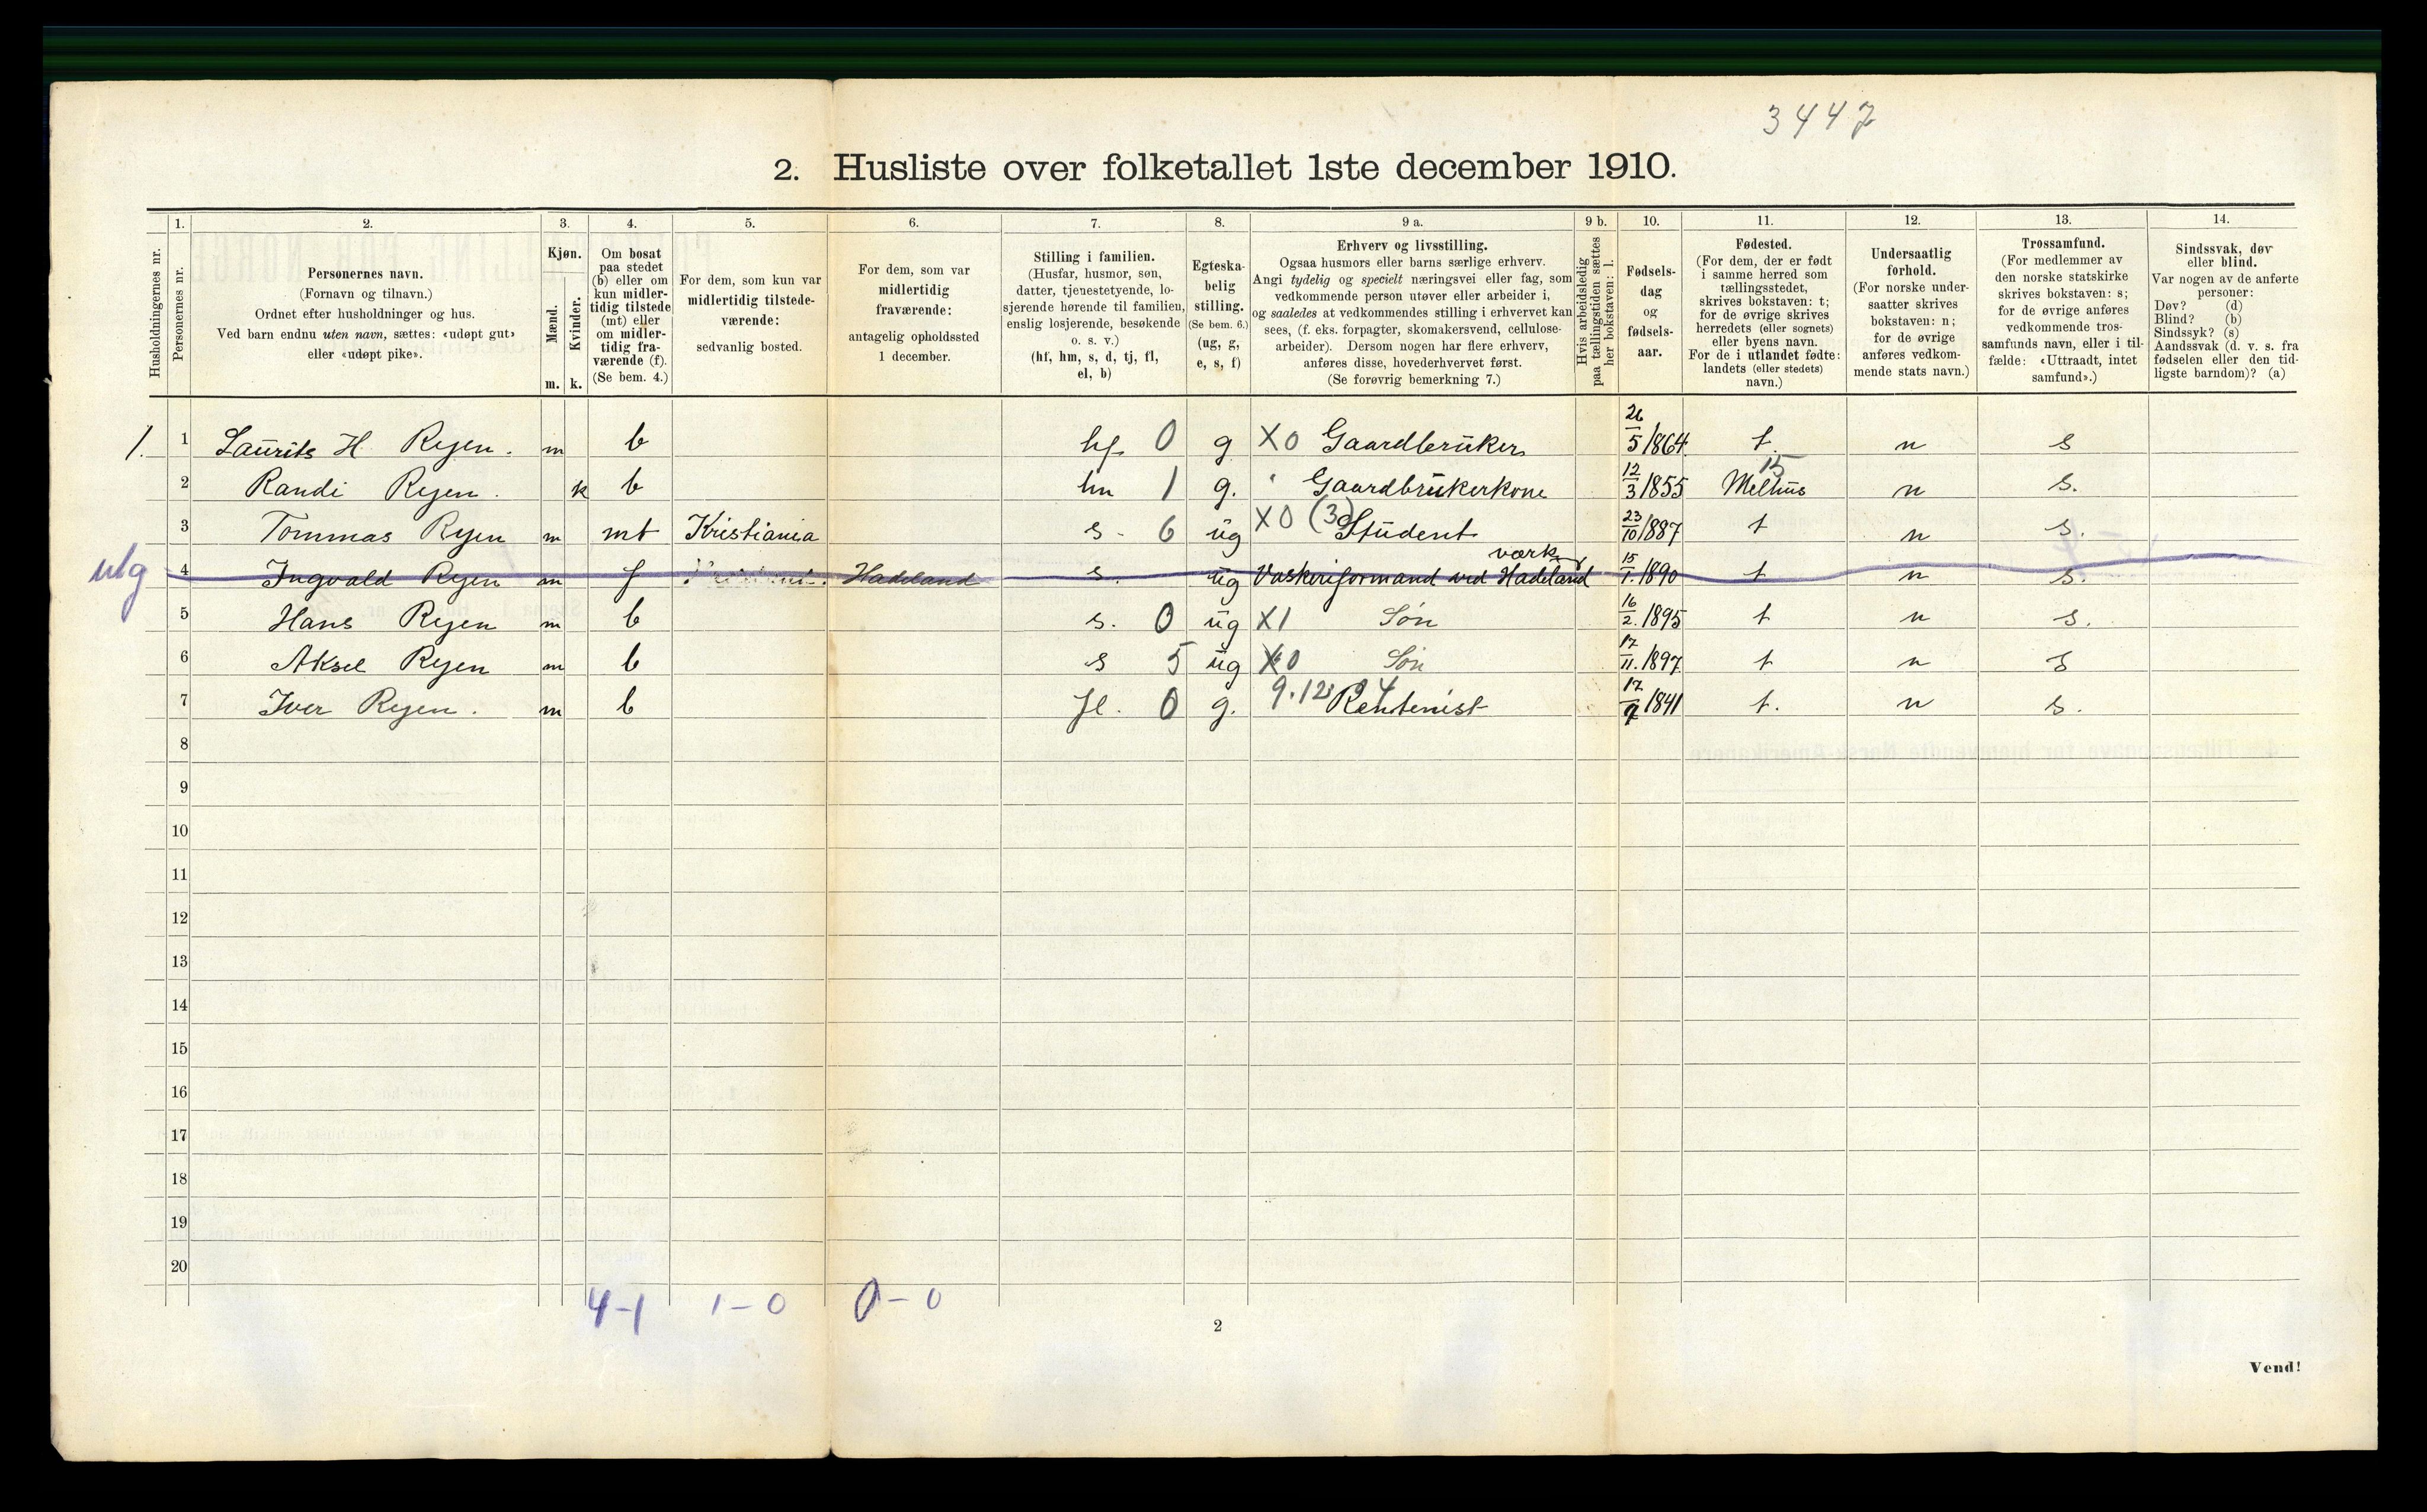 3447
2. Husliste over folketallet 1ste december 1910.
1. 2. 3. 4. 5. 6. 7. 8. 9 a. 9 b. 10. 11. 12. 13. 14.
Husholdningernes nr.
Personernes nr.
Personernes navn.
(Fornavn og tilnavn.)
Ordnet efter husholdninger og hus.
Ved barn endnu uten navn, sættes: «udøpt gut»
eller «udøpt pike».
Kjøn.
Mænd.
Kvinder.
m. k.
Om bosat
paa stedet
(b) eller om
kun midler-
tidig tilstede
(mt) eller
om midler-
tidig fra-
værende (f).
(Se bem. 4.)
For dem, som kun var
midlertidig tilstede-
værende:
sedvanlig bosted.
For dem, som var
midlertidig
fraværende:
antagelig opholdssted
1 december.
Stilling i familien.
(Husfar, husmor, søn,
datter, tjenestetyende, lo-
sjerende hørende til familien,
enslig losjerende, besøkende
o. s. v.)
(hf, hm, s, d, tj, fl,
el, b)
Egteska-
belig
stilling.
(Se bem. 6.)
(ug, g,
e, s, f)
Erhverv og livsstilling.
Ogsaa husmors eller barns særlige erhverv.
Angi tydelig og specielt næringsvei eller fag, som
vedkommende person utøver eller arbeider i,
og saaledes at vedkommendes stilling i erhvervet kan
sees, (f. eks. forpagter, skomakersvend, cellulose-
arbeider). Dersom nogen har flere erhverv,
anføres disse, hovederhvervet først.
(Se forøvrig bemerkning 7.)
Hvis arbeidsledig
paa tællingstiden sættes
her bokstaven: l.
Fødsels-
dag
og
fødsels-
aar.
Fødested.
(For dem, der er født
i samme herred som
tællingsstedet,
skrives bokstaven: t;
for de øvrige skrives
herredets (eller sognets)
eller byens navn.
For de i utlandet fødte:
landets (eller stedets)
navn.)
Undersaatlig
forhold.
(For norske under-
saatter skrives
bokstaven: n;
for de øvrige
anføres vedkom-
mende stats navn.)
Trossamfund.
(For medlemmer av
den norske statskirke
skrives bokstaven: s;
for de øvrige anføres
vedkommende tros-
samfunds navn, eller i til-
fælde: «Uttraadt, intet
samfund».)
Sindssvak, døv
eller blind.
Var nogen av de anførte
personer:
Døv? (d)
Blind? (b)
Sindssyk? (s)
Aandssvak (d. v. s. fra
fødselen eller den tid-
ligste barndom)? (a)
1. 1 Laurits H Ryen. m b hf. 0 g X0 Gaardbruker 26/5 1864. t. n s
2 Randi Ryen. k b hm 1 g. Gaardbrukerkone 12/3 1855 Melhus 15 n s.
3 Tommas Ryen m mt Kristiania s. 6 ug X0 (3) Student 23/10 1887 t n s.
utg 4 Ingvald Ryen m f Hadeland s. ug Vaskeriformand ved Hadeland værk 15/1. 1890 t n s.
5 Hans Ryen m b s. 0 ug X1 Søn 16/2. 1895 t n s.
6 Aksel Ryen m b s 5 ug X0 Søn 17/11. 1897 t n s
7 Iver Ryen. m b fl. 0 g. 9.12 Rentenist 17/9 1841 t. n s.
8
9
10
11
12
13
14
15
16
17
18
19
20
4-1 1-0 0-0
2
Vend!